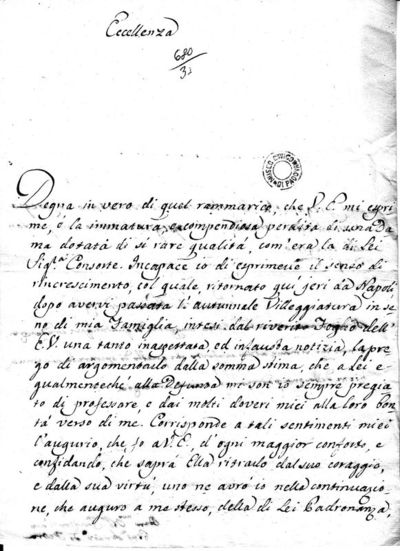 Eccellenza
680/32
MUSEO CIVICO DI PADOVA
Degna in vero di quel rammarico, che V. E. mi espri
me, è la immatura, e compendiosa perdita di una Da
ma dotata di sì rare qualità, com'era la di Lei
Sig.ra Consorte. Incapace io di esprimere il senso di
rincrescimento, col quale, ritornato qui jeri da Napoli
dopo avervi passata l'autunnale Villeggiatura in se
no di mia Famiglia, intesi dal riverito Foglio dell'
E.V. una tanto inaspettata ed infausta notizia, la pre
go di argomentarlo dalla somma stima, che a Lei e
gualmente che alla Defunta mi son io sempre pregia
to di professare, e dai molti doveri miei alla loro bon
tà verso di me. Corrisponde a tali sentimenti miei
l'augurio, che fo a V. E. d'ogni maggior conforto, e
confidando, che saprà Ella ritrarlo dal suo coraggio,
e dalla sua virtù, uno ne avrò io nella continuazio
ne, che auguro a me stesso, della di Lei Padronanza,